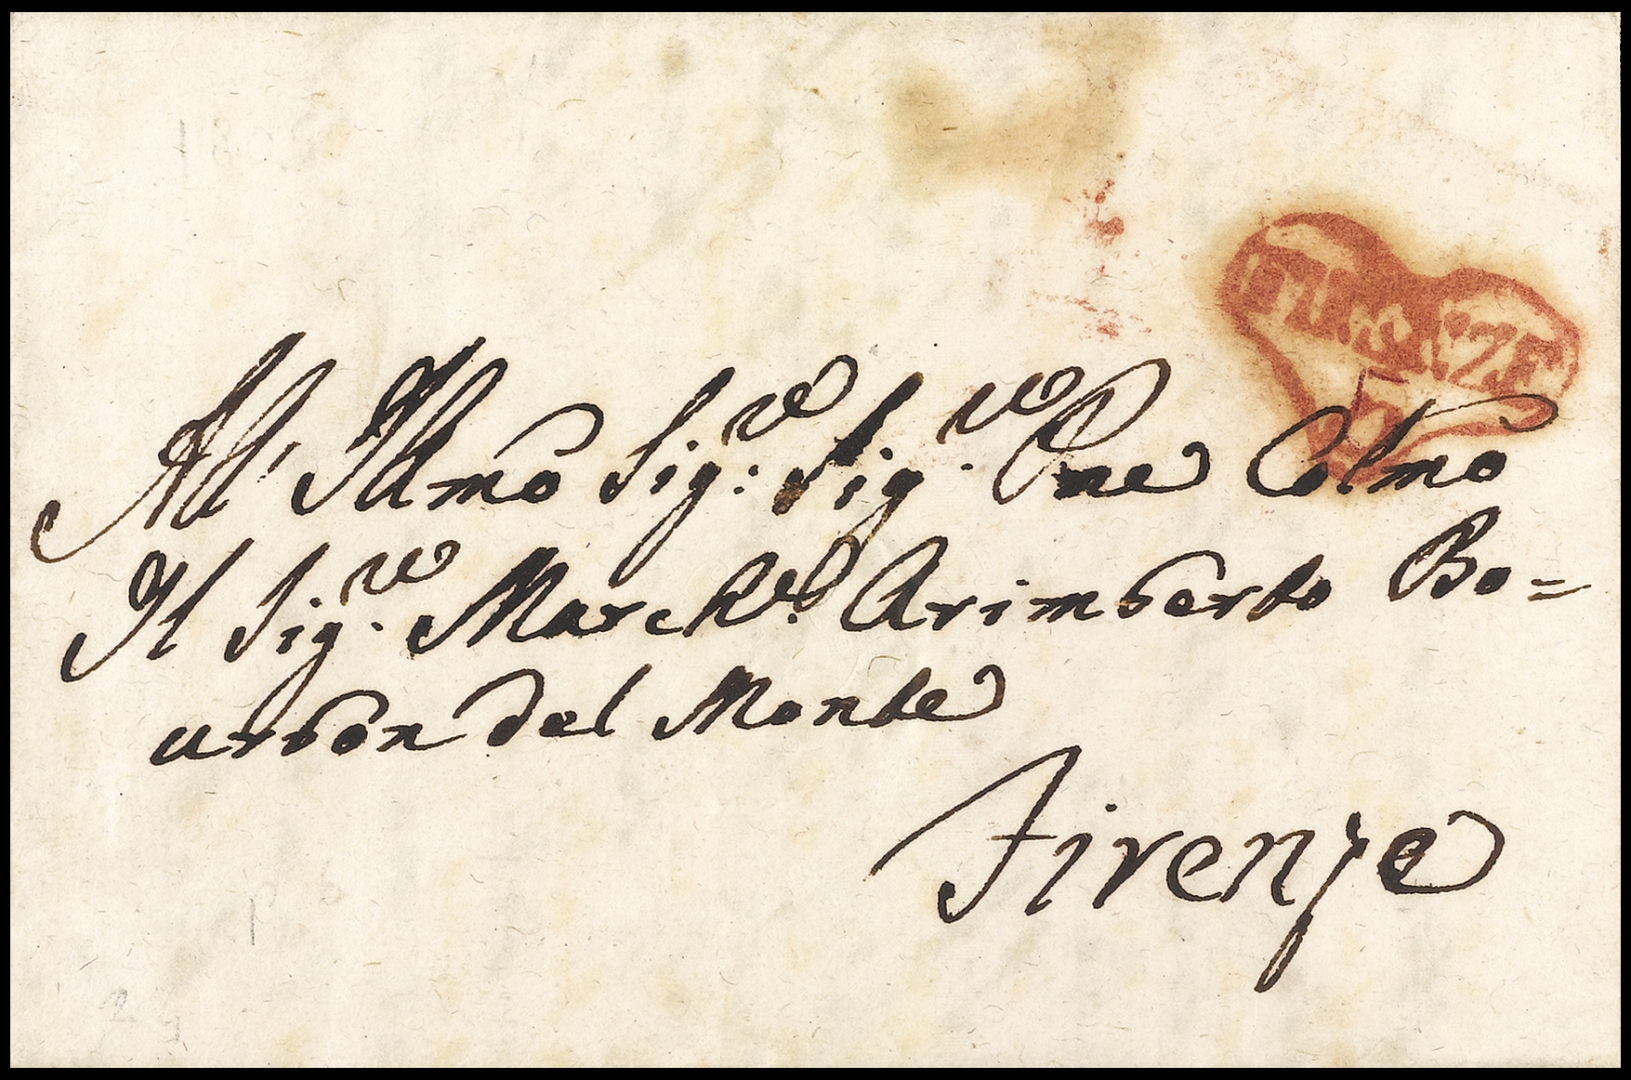 FIRENZE
All' Illmo Sig:re Sig.re Pne Colmo
Il Sig.re March.e Arimberto Bo=
urbon del Monte
Firenze